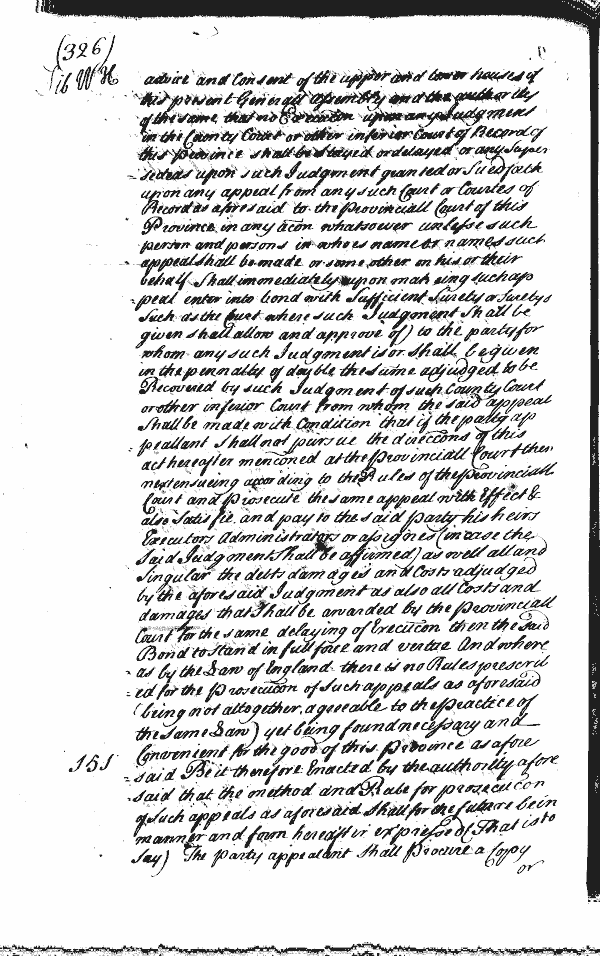 (326)
Lib W H
advice and Consent of the upper and lower houses of
this present Generall Assembly and the authority
of the same, that no Execution upon any Judgment
in the County Court or other inferior Court of Record of
this province shall be Stayed or delayed or any Super
sedeas upon such Judgment granted or Sued forth
upon any appeal from any such Court or Courtes of
Record as aforesaid to the Provinciall Court of this
Province in any accon whatsoever unlesse such
person and persons in whoes name or names such
appeal shall be made or some other on his or their
behalf Shall immediately upon making such ap
peal enter into bond with Sufficient Surety or Suretys
Such as the Court where such Judgment Shall be
given shall allow and approve of) to the party for
whom any such Judgment is or Shall be given
in the pennalty of double the same adjudged to be
Recovered by such Judgment of such County Court
or other inferior Court from whom the said appeal
Shall be made with Condition that if the party ap
peallant Shall not pursue the direccons of this
act hereafter menconed at the Provinciall Court then
next ensueing according to the Rules of the Provinciall
Court and Prosecute the same appeal with Effect &
also Satisfie and pay to the said Party his heirs
Executors Administrators or assignes (in case the
Said Judgment Shall be affirmed) as well all and
Singular the debts damages and Costs adjudged
by the aforesaid Judgment as also all Costs and
damages that Shall be awarded by the Provinciall
Court for the same delaying of Execucon then the said
Bond to Stand in full force and vertue And where
as by the Law of England there is no Rules prescrib
ed for the Prosecucon of Such appeals as aforesaid
(being not altogether agreeable to the practice of
the Same Law) yet being found necessary and
Convenient for the good of this Province as afore
151
said Be it therefore Enacted by the authority afore
said that the method and Rule for prosecucon
of Such appeals as aforesaid Shall for the future be in
manner and form hereafter expressed (That is to
Say) The party appealant Shall Procure a Copy
or